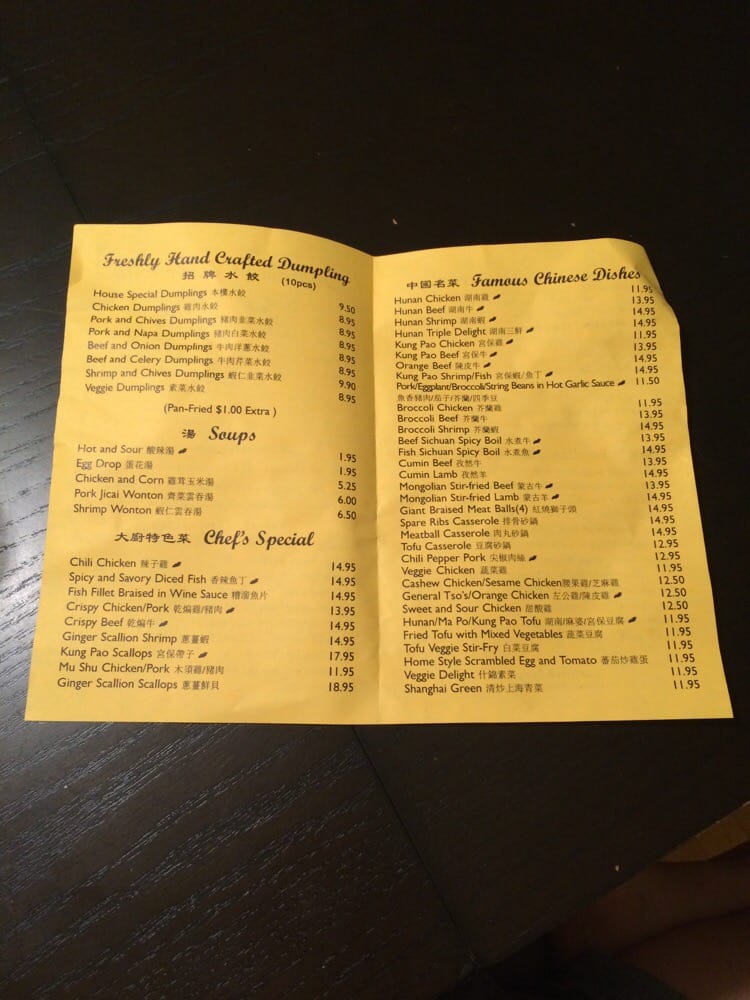 Freshly Hand Crafted Dumpling
招牌水餃 (10pcs)
House Special Dumplings 本樓水餃 9.50
Chicken Dumplings 雞肉水餃 8.95
Pork and Chives Dumplings 豬肉韭菜水餃 8.95
Pork and Napa Dumplings 豬肉白菜水餃 8.95
Beef and Onion Dumplings 牛肉洋蔥水餃 8.95
Beef and Celery Dumplings 牛肉芹菜水餃 8.95
Shrimp and Chives Dumplings 蝦仁韭菜水餃 9.90
Veggie Dumplings 素菜水餃 8.95
(Pan-Fried $1.00 Extra )
湯 Soups
Hot and Sour 酸辣湯 1.95
Egg Drop 蛋花湯 1.95
Chicken and Corn 雞茸玉米湯 5.25
Pork Jicai Wonton 齊菜雲吞湯 6.00
Shrimp Wonton 蝦仁雲吞湯 6.50
大廚特色菜 Chef's Special
Chili Chicken 辣子雞 14.95
Spicy and Savory Diced Fish 香辣魚丁 14.95
Fish Fillet Braised in Wine Sauce 糟溜魚片 14.95
Crispy Chicken/Pork 乾煸雞/豬肉 13.95
Crispy Beef 乾煸牛 14.95
Ginger Scallion Shrimp 蔥薑蝦 14.95
Kung Pao Scallops 宮保帶子 17.95
Mu Shu Chicken/Pork 木須雞/豬肉 11.95
Ginger Scallion Scallops 蔥薑鮮貝 18.95
中國名菜 Famous Chinese Dishes
Hunan Chicken 湖南雞 11.95
Hunan Beef 湖南牛 13.95
Hunan Shrimp 湖南蝦 14.95
Hunan Triple Delight 湖南三鮮 14.95
Kung Pao Chicken 宮保雞 11.95
Kung Pao Beef 宮保牛 13.95
Orange Beef 陳皮牛 14.95
Kung Pao Shrimp/Fish 宮保蝦/魚丁 14.95
Pork/Eggplant/Broccoli/String Beans in Hot Garlic Sauce 11.50
魚香豬肉/茄子/芥蘭/四季豆
Broccoli Chicken 芥蘭雞 11.95
Broccoli Beef 芥蘭牛 13.95
Broccoli Shrimp 芥蘭蝦 14.95
Beef Sichuan Spicy Boil 水煮牛 13.95
Fish Sichuan Spicy Boil 水煮魚 14.95
Cumin Beef 孜然牛 13.95
Cumin Lamb 孜然羊 14.95
Mongolian Stir-fried Beef 蒙古牛 13.95
Mongolian Stir-fried Lamb 蒙古羊 14.95
Giant Braised Meat Balls(4) 紅燒獅子頭 14.95
Spare Ribs Casserole 排骨砂鍋 14.95
Meatball Casserole 肉丸砂鍋 14.95
Tofu Casserole 豆腐砂鍋 12.95
Chili Pepper Pork 尖椒肉絲 12.95
Veggie Chicken 蔬菜雞 11.95
Cashew Chicken/Sesame Chicken腰果雞/芝麻雞 12.50
General Tso's/Orange Chicken 左公雞/陳皮雞 12.50
Sweet and Sour Chicken 甜酸雞 12.50
Hunan/Ma Po/Kung Pao Tofu 湖南/麻婆/宮保豆腐 11.95
Fried Tofu with Mixed Vegetables 蔬菜豆腐 11.95
Tofu Veggie Stir-Fry 白菜豆腐 11.95
Home Style Scrambled Egg and Tomato 蕃茄炒雞蛋 11.95
Veggie Delight 什錦素菜 11.95
Shanghai Green 清炒上海青菜 11.95